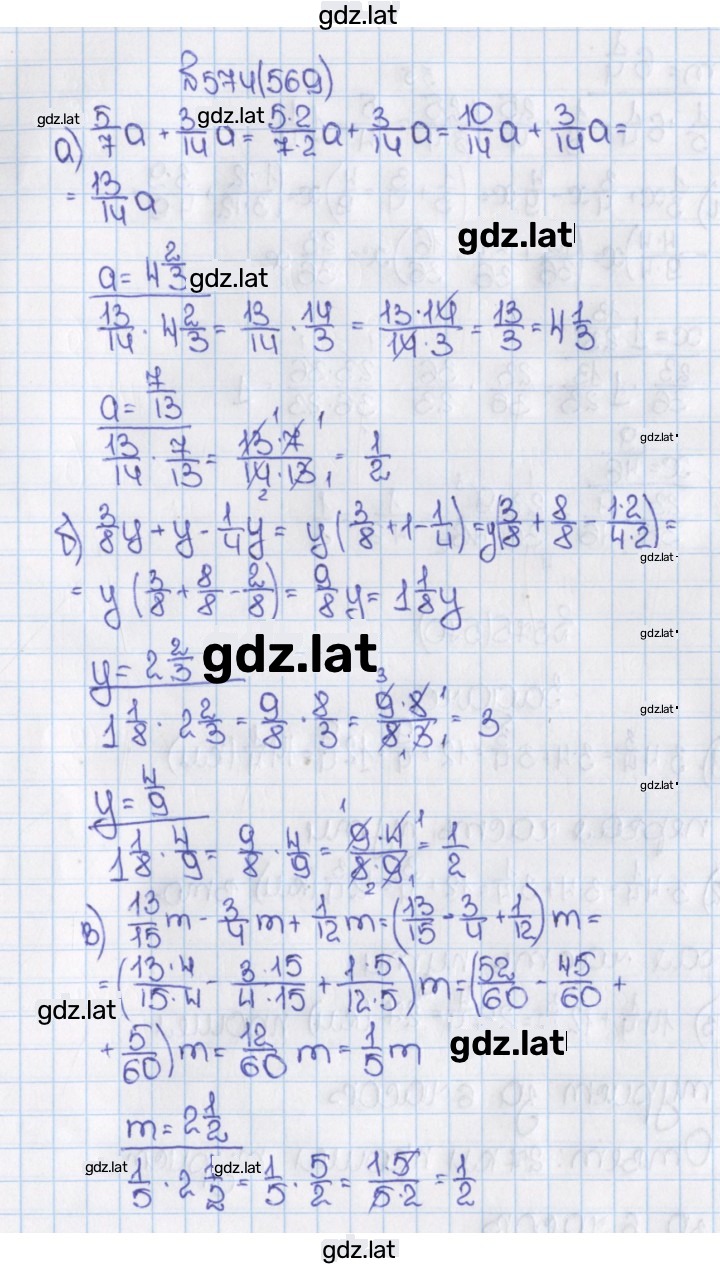 gdz.lat
№574(569)
gdz.lat gdz.lat
а) 5/7 a + 3/14 a = 5·2/7·2 a + 3/14 a = 10/14 a + 3/14 a =
= 13/14 a
gdz.lat
a = 4 2/3 gdz.lat
13/14 · 4 2/3 = 13/14 · 14/3 = 13·14/14·3 = 13/3 = 4 1/3
a = 7/13
gdz.lat
13/14 · 7/13 = 13·7/14·13 = 1/2
б) 3/8 y + y - 1/4 y = y (3/8 + 1 - 1/4) = y(3/8 + 8/8 - 1·2/4·2) =
gdz.lat
= y (3/8 + 8/8 - 2/8) = 9/8 y = 1 1/8 y
gdz.lat
y = 2 2/3 gdz.lat
gdz.lat
1 1/8 · 2 2/3 = 9/8 · 8/3 = 9·8/8·3 = 3
gdz.lat
y = 4/9
1 1/8 · 4/9 = 9/8 · 4/9 = 9·4/8·9 = 1/2
в) 13/15 m - 3/4 m + 1/12 m = (13/15 - 3/4 + 1/12) m =
= (13·4/15·4 - 3·15/4·15 + 1·5/12·5) m = (52/60 - 45/60 +
gdz.lat
+ 5/60) m = 12/60 m = 1/5 m
gdz.lat
m = 2 1/2
gdz.lat gdz.lat
1/5 · 2 1/2 = 1/5 · 5/2 = 1·5/5·2 = 1/2
gdz.lat